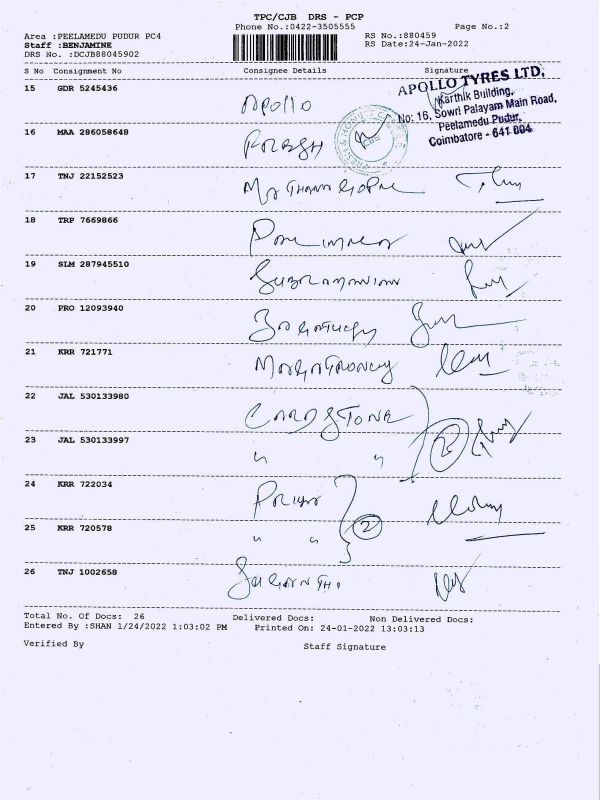 TPC/CJB DRS - PCP
Phone No.:0422-3505555 Page No.:2
Area :PEELAMEDU PUDUR PC4 RS No.:880459
Staff :BENJAMINE RS Date:24-Jan-2022
DRS No. :DCJB88045902
S No Consignment No Consignee Details Signature
APOLLO TYRES LTD.
Karthik Building,
No: 16, Sowri Palayam Main Road,
Peelamedu Pudur,
Coimbatore - 641 004
15 GDR 5245436 APOLLO
16 MAA 286058648
17 TNJ 22152523
18 TRP 7669866
19 SLM 287945510 SUBRAMANIAN
20 PRO 12093940
21 KRR 721771
22 JAL 530133980 CARDSTONE
23 JAL 530133997 " " 2
24 KRR 722034 PRIYA
25 KRR 720578 " " 2
26 TNJ 1002658 SUGANTHI
Total No. Of Docs: 26 Delivered Docs: Non Delivered Docs:
Entered By :SHAN 1/24/2022 1:03:02 PM Printed On: 24-01-2022 13:03:13
Verified By Staff Signature